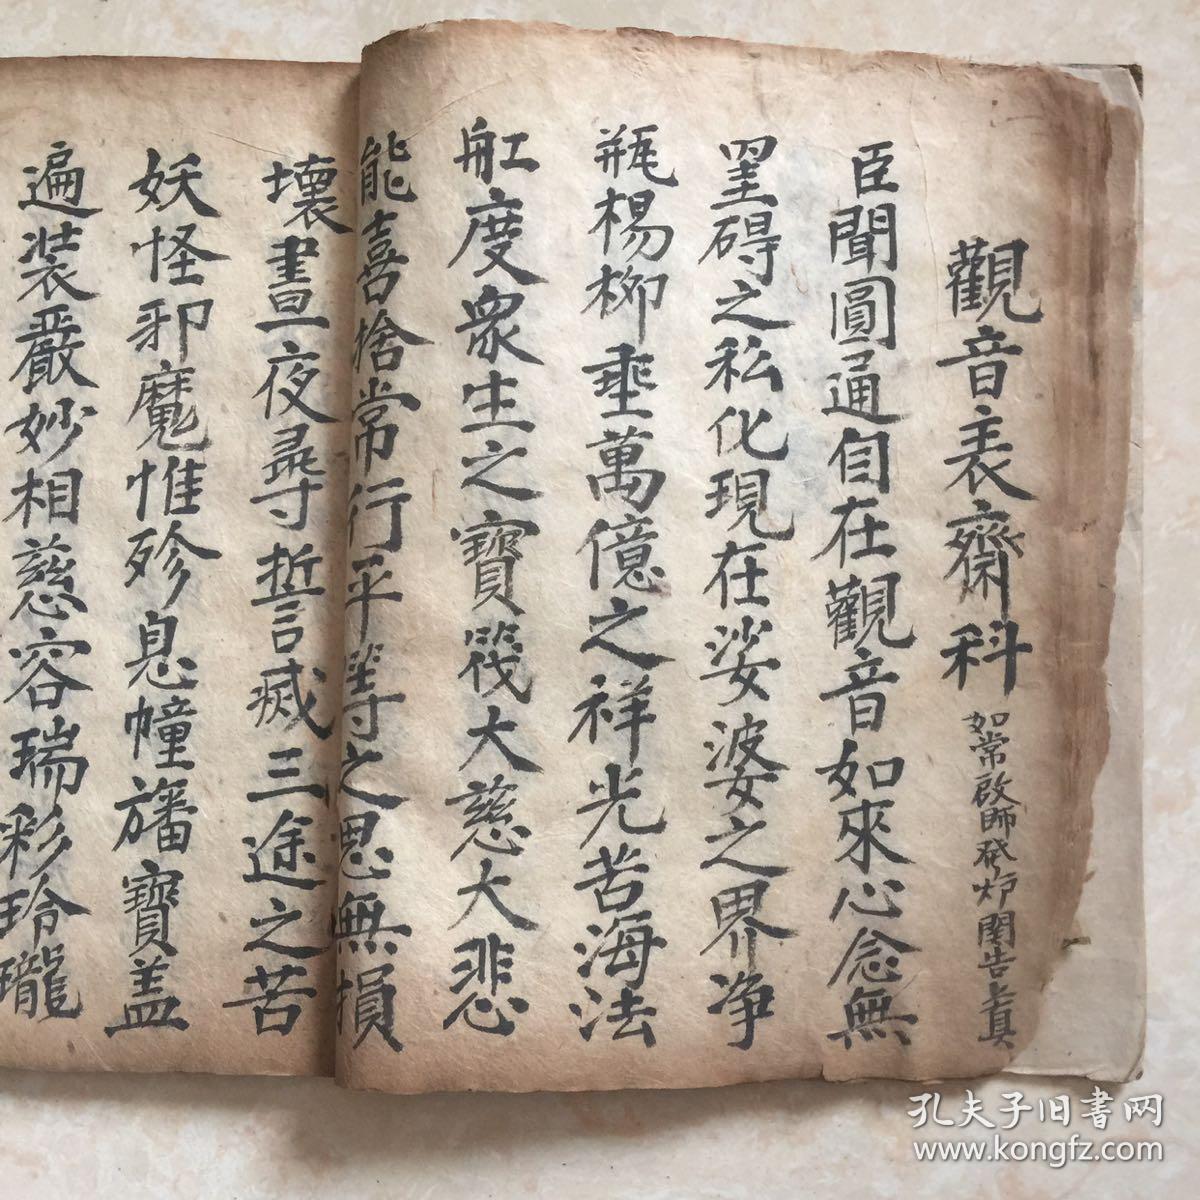 觀音表齋科 如常啟師發炉関告上真
臣聞圓通自在觀音如來心念無
罣碍之私化現在娑婆之界净
瓶楊柳垂萬億之祥光苦海法
舡度衆生之寶筏大慈大悲
能喜捨常行平等之恩無損
壞晝夜尋哲言滅三途之苦
妖怪邪魔惟殄息幢旛寶盖
遍装嚴妙相慈容瑞彩玲瓏
孔夫子旧书网
www.kongfz.com